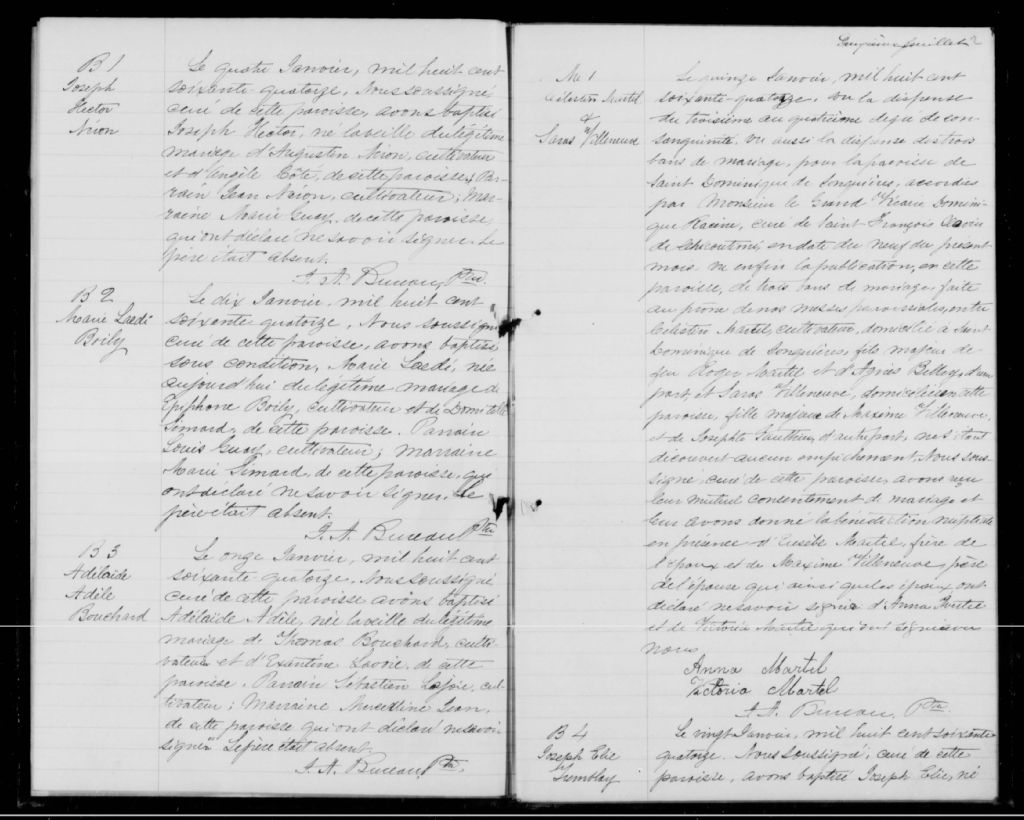 B 1
Joseph
Hector
Néron
Le quatre Janvier, mil huit cent
soixante quatorze, Nous soussigné
curé de cette paroisse, avons baptisé
Joseph Hector, né la veille du légitime
mariage d'Augustin Néron, cultivateur
et d'Angèle Côté, de cette paroisse. Par-
rain Jean Néron, cultivateur; Mar-
raine Marie Guay, de cette paroisse
qui ont déclaré ne savoir signer. Le
père était absent.
Ptre
B 2
Marie
Boily
Le dix Janvier, mil huit cent
soixante quatorze, Nous soussigné
curé de cette paroisse, avons baptisé
sous condition, Marie née
aujourd'hui du légitime mariage de
Epiphane Boily, cultivateur et de Domitille
Simard, de cette paroisse. Parrain
Louis Guay, cultivateur; marraine
Marie Simard, de cette paroisse, qui
ont déclaré ne savoir signer. Le
père était absent.
Ptre
B 3
Adélaïde
Adèle
Bouchard
Le onze Janvier, mil huit cent
soixante quatorze, Nous soussigné
curé de cette paroisse avons baptisé
Adélaïde Adèle, née la veille du légitime
mariage de Thomas Bouchard, culti-
vateur et d' Lavoie, de cette
paroisse. Parrain Sébastien cul-
tivateur; Marraine Jean,
de cette paroisse qui ont déclaré ne savoir
signer Le père était absent.
Ptre
feuillet 2
M 1
Célestin Martel
&
Saras Villeneuve
Le quinze Janvier, mil huit cent
soixante-quatorze, vu la dispense
du troisième au quatrième degré de con-
sanguinité. Vu aussi la dispense des trois
bans de mariage, pour la paroisse de
Saint Dominique de Jonquières, accordées
par Monsieur le Grand Vicaire Domini-
que Racine, curé de Saint François Xavier
de Chicoutimi, en date du neuf du présent
mois vu enfin la publication, en cette
paroisse, de trois bans de mariage faite
au prône de nos messes paroissiales, entre
Célestin Martel, cultivateur, domicilié à Saint
Dominique de Jonquières, fils majeur de
feu Roger Martel et d'Agnès d'une
part, et Saras Villeneuve, domiciliée en cette
paroisse, fille majeure de Maxime Villeneuve
et de Josephte d'autre part, ne s'étant
découvert aucun empêchement, Nous sous-
signé, curé de cette paroisse, avons reçu
leur mutuel consentement de mariage et
leur avons donné la bénédiction nuptiale
en présence d' Martel, frère de
l'époux et de Maxime Villeneuve père
de l'épouse qui ainsi que les époux ont
déclaré ne savoir signer d'Anna Martel
et de Victoria Martel qui ont signé avec
nous
Anna Martel
Victoria Martel
Ptre
B 4
Joseph Elie
Tremblay
Le vingt Janvier, mil huit cent soixante
quatorze. Nous soussigné, curé de cette
paroisse, avons baptisé Joseph Elie, né